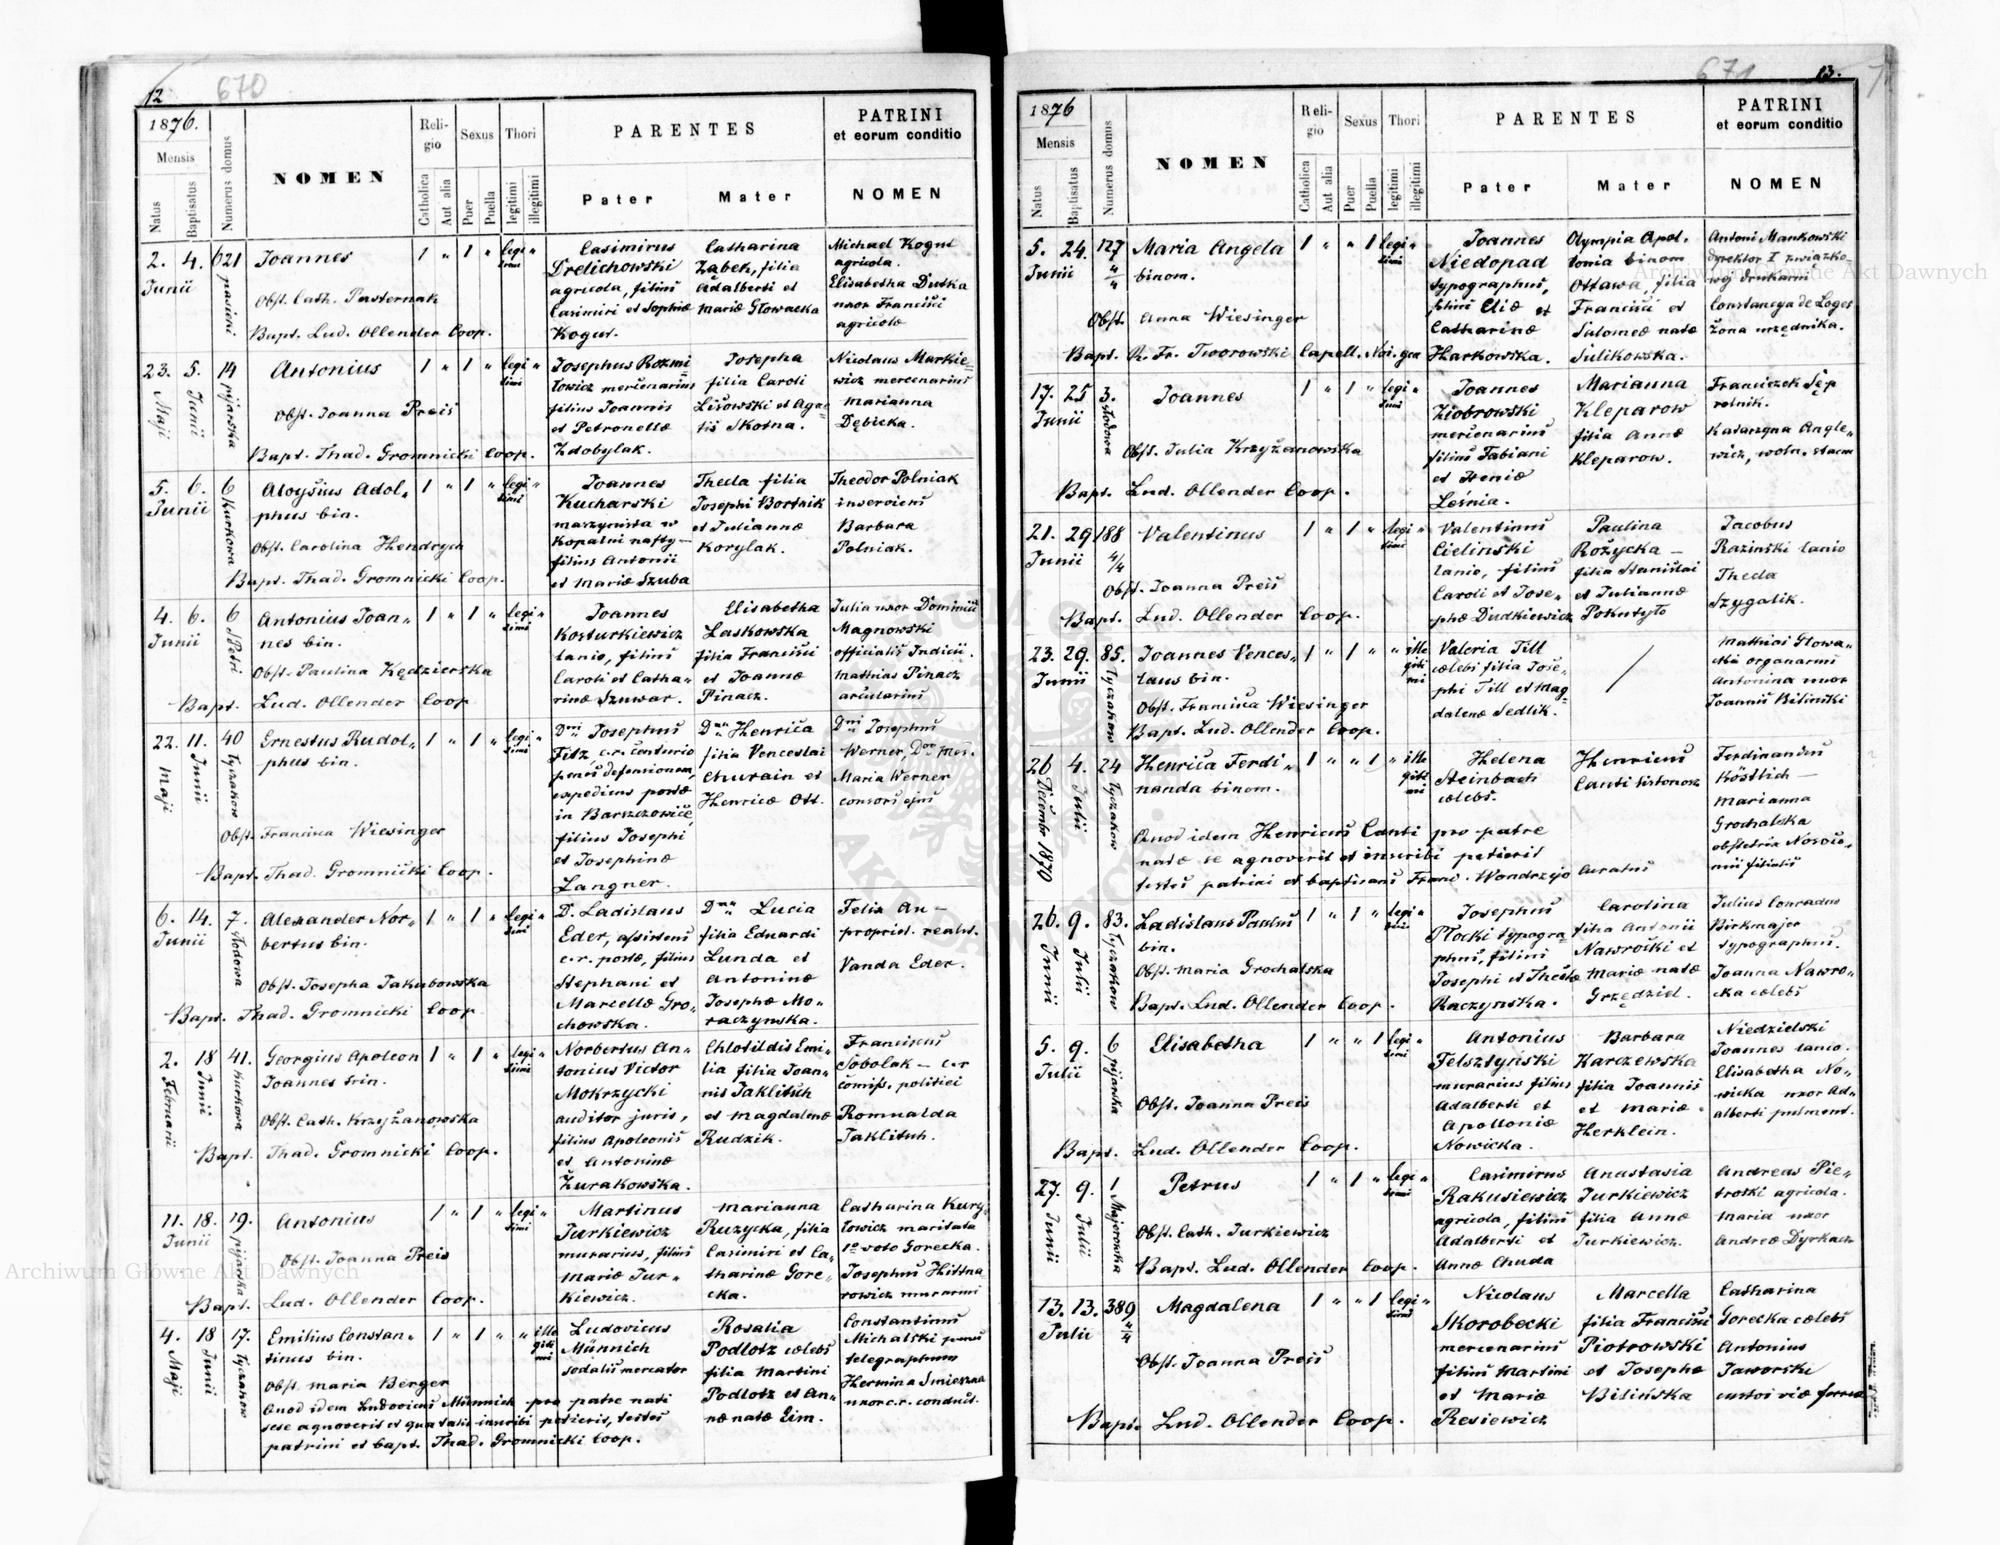 12
670
1876.
Mensis
Natus
Baptisatus
Numerus domus
NOMEN
Religio
Catholica
Aut alia
Sexus
Puer
Puella
Thori
legitimi
illegitimi
PARENTES
Pater
Mater
PATRINI
et eorum conditio
NOMEN
2. 4. 621 Joannes 1 " 1 " legi "
Junii
timi
Obst. Cath. Pasternak
Bapt. Lud. Ollender Coop.
Casimirus
Drelichowski
agricola, filius
Casimiri et Sophiæ
Kogut.
Catharina
Ząbek, filia
Adalberti et
Mariæ Głowacka
Michael Kogut
agricola.
Elisabetha Dutka
uxor Francisci
agricolæ
23. 5. 14 Antonius 1 " 1 " legi "
Maji Junii pijarska
timi
Obst. Joanna Preis
Bapt. Thad. Gromnicki Coop.
Josephus Rozmi
łowicz mercenarius
filius Joannis
et Petronellæ
Zdobylak.
Josepha
filia Caroli
Lisowski et Aga=
tis Skotna.
Nicolaus Markie=
wicz mercenarius
Marianna
Dębicka.
5. 6. 6 Aloysius Adol= 1 " 1 " legi "
Junii Kurkowa
phus bin.
timi
Obst. Carolina Hendrych
Bapt. Thad. Gromnicki Coop.
Joannes
Kucharski
maszynista w
Kopalni nafty—
filius Antonii
et Mariæ Szuba
Thecla filia
Josephi Bortnik
et Juliannæ
Korylak.
Theodor Polniak
inserviens
Barbara
Polniak.
4. 6. 6 Antonius Joan= 1 " 1 " legi "
Junii S Petri
nes bin.
timi
Obst. Paulina Kędzierska
Bapt. Lud. Ollender Coop
Joannes
Kosturkiewicz
lanio, filius
Caroli et Catha=
rinæ Szuwar.
Elisabetha
Laskowska
filia Francisci
et Joannæ
Pinacz.
Julia uxor Dominici
Magnowski
officialis Indicii.
Mathias Pinacz
arcularius
22. 11. 40 Ernestus Rudol= 1 " 1 " legi "
Maji Junii Łyczakow
phus bin.
timi
Obst. Francisca Wiesinger
Bapt. Thad. Gromnicki Coop.
Dnus Josephus
Fitz c.r. centurio
penes defensionem,
expediens postæ
in Barszczowice,
filius Josephi
et Josephinæ
Langner.
Dna Henrica
filia Venceslai
Churain et
Henricæ Ott.
Dnus Josephus
Werner, Dor Med.
Maria Werner
consors ejus
6. 14. 7. Alexander Nor= 1 " 1 " legi "
Junii słodowa
bertus bin.
timi
Obst. Josepha Jakubowska
Bapt. Thad. Gromnicki Coop
D. Ladislaus
Eder, assistens
c.r. postæ, filius
Stephani et
Marcellæ Gro=
chowska.
Dna Lucia
filia Eduardi
Lunda et
Antoninæ
Josephæ Mo=
raczynska.
Felix An—
propriet. realit.
Vanda Eder.
2. 18 41. Georgius Apoleon 1 " 1 " legi "
Februarii Junii Kurkowa
Joannes trin.
timi
Obst. Cath. Krzyżanowska
Bapt. Thad. Gromnicki Coop.
Norbertus An=
tonius Victor
Mokrzycki
auditor juris,
filius Apoleonis
et Antoninæ
Żurakowska.
Chlotildis Emi=
lia filia Joan=
nis Jaklitsch
et Magdalenæ
Rudzik.
Franciscus
Sobolak — c.r
comiss. politiei
Romualda
Jaklitsch.
11. 18. 19. Antonius 1 " 1 " legi "
Junii pijarska
timi
Obst. Joanna Preis
Bapt. Lud. Ollender Coop.
Martinus
Jurkiewicz
murarius, filius
Mariæ Jur=
kiewicz.
Marianna
Ruzycka, filia
Casimiri et Ca=
tharinæ Gore=
cka.
Catharina Kury=
łowicz maritata
1o voto Gorecka.
Josephus Hittna
rowicz murarius
4. 18 17. Emilius Constan= 1 " 1 " " ille
Maji Junii Łyczakow
tinus bin.
giti
mi
Obst. Maria Berger
Quod idem Ludovicus Münnich pro patre nati
sese agnoverit et qua talis inscribi petierit, testes
patrini et bapt. Thad. Gromnicki Coop.
Ludovicus
Münnich
sodalis mercator
Rosalia
Podlotz cælebs
filia Martini
Podlotz et An=
næ natæ Eim.
Constantinus
Michalski penes
telegraphum
Hermina Smieszna
uxor c.r. conduct.
671
13.
1876
Mensis
Natus
Baptisatus
Numerus domus
NOMEN
Religio
Catholica
Aut alia
Sexus
Puer
Puella
Thori
legitimi
illegitimi
PARENTES
Pater
Mater
PATRINI
et eorum conditio
NOMEN
5. 24. 127 Maria Angela 1 " " 1 legi "
Junii 4/4
binom.
timi
Obst. Anna Wiesinger
Bapt. R. Fr. Tworowski Capell.
Joannes
Niedopad
typographus,
filius Eliæ et
Catharinæ
Harkowska.
Olympia Apol=
lonia binom
Ottawa, filia
Francisci et
Salomeæ natæ
Sulikowska.
Antoni Mankowski
dyrektor I związko=
wej drukarni
Constancya de Loges
żona urzędnika.
17. 25 3. Joannes 1 " 1 " legi "
Junii słodowa
timi
Obst. Julia Krzyżanowska
Bapt. Lud. Ollender Coop.
Joannes
Ziobrowski
mercenarius
filius Fabiani
et Xeniæ
Leśnia.
Marianna
Kleparow
filia Annæ
Kleparow.
Franciszek Sęp
rolnik.
Katarzyna Angle=
wicz, woln. stanu
21. 29 188 Valentinus 1 " 1 " legi "
Junii 4/4
timi
Obst. Joanna Preis
Bapt. Lud. Ollender Coop.
Valentinus
Cielinski
lanio, filius
Caroli et Jose=
phæ Dudkiewicz
Paulina
Rożycka —
filia Stanislai
et Juliannæ
Pokutyło
Jacobus
Razinski lanio
Thecla
Szygalik.
23. 29. 85. Joannes Vences= 1 " 1 " " ille
Junii Łyczakow
laus bin.
giti
mi
Obst. Francisca Wiesinger
Bapt. Lud. Ollender Coop.
Valeria Till
cælebs filia Jose=
phi Till et Mag=
dalenæ Sedlik.
Mathias Głowa=
cki organarius
Antonina uxor
Joannis Bilinski
26 4. 24 Henrica Ferdi= 1 " " 1 " ille
Decembr 1870 Julii Łyczakow
nanda binom.
giti
mi
Quod idem Henricus Canti pro patre
natæ se agnoverit et inscribi petierit
testes patrini et baptisans Franc. Wondrzyo curatus
Helena
Steinbach
cælebs.
Henricus
Canti listonosz
Ferdinandus
Köstlich —
Marianna
Grochalska
obstetrix
26. 9. 83. Ladislaus Paulus 1 " 1 " legi "
Junii Julii Łyczakow
bin.
timi
Obst. Maria Grochalska
Bapt. Lud. Ollender Coop.
Josephus
Płocki typogra=
phus, filius
Josephi et Theclæ
Raczynska.
Carolina
filia Antonii
Nawrocki et
Mariæ natæ
Grzędziel.
Julius Conradus
Birkmajer
typographus.
Joanna Nawro=
cka cælebs
5. 9. 6 Elisabetha 1 " " 1 legi "
Julii pijarska
timi
Obst. Joanna Preis
Bapt. Lud. Ollender Coop.
Antonius
Felsztyński
murarius filius
Adalberti et
Apolloniæ
Nowicka.
Barbara
Karczewska
filia Joannis
et Mariæ
Herklein.
Niedzielski
Joannes lanio.
Elisabetha No=
wicka uxor Ad=
alberti
27. 9. 1 Petrus 1 " 1 " legi "
Junii Julii Majerowka
timi
Obst. Cath. Jurkiewicz
Bapt. Lud. Ollender Coop.
Casimirus
Rakusiewicz
agricola, filius
Adalberti et
Annæ Chuda
Anastasia
Jurkiewicz
filia Annæ
Jurkiewicz.
Andreas Pie=
troski agricola.
Maria uxor
Andreæ Dyrkacz
13. 13. 389 Magdalena 1 " " 1 legi "
Julii 4/4
timi
Obst. Joanna Preis
Bapt. Lud. Ollender Coop.
Nicolaus
Skorobecki
mercenarius
filius Martini
et Mariæ
Resiewicz
Marcella
filia Francisci
Piotrowski
et Josephæ
Bilińska
Catharina
Gorecka cælebs
Antonius
Jaworski
custos viæ ferreæ
Archiwum Główne Akt Dawnych
Archiwum Główne Akt Dawnych